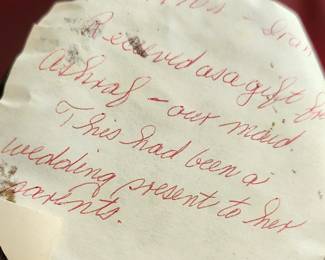 Received as a gift from
Ashraf – our maid.
This had been a
wedding present to her
parents.